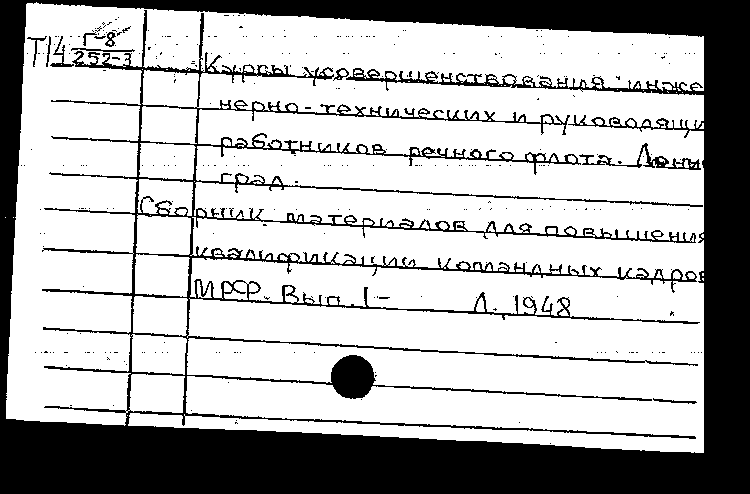 Т14 Г-8
252-3
Курсы усовершенствования инже
нерно-технических и руководящи
работников речного флота. Ленин
град.
Сборник материалов для повышения
квалификации командных кадров
МРФ. Вып. 1- Л., 1948